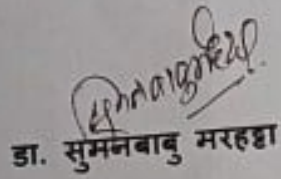 डा. सुमनबाबु मरहट्टा